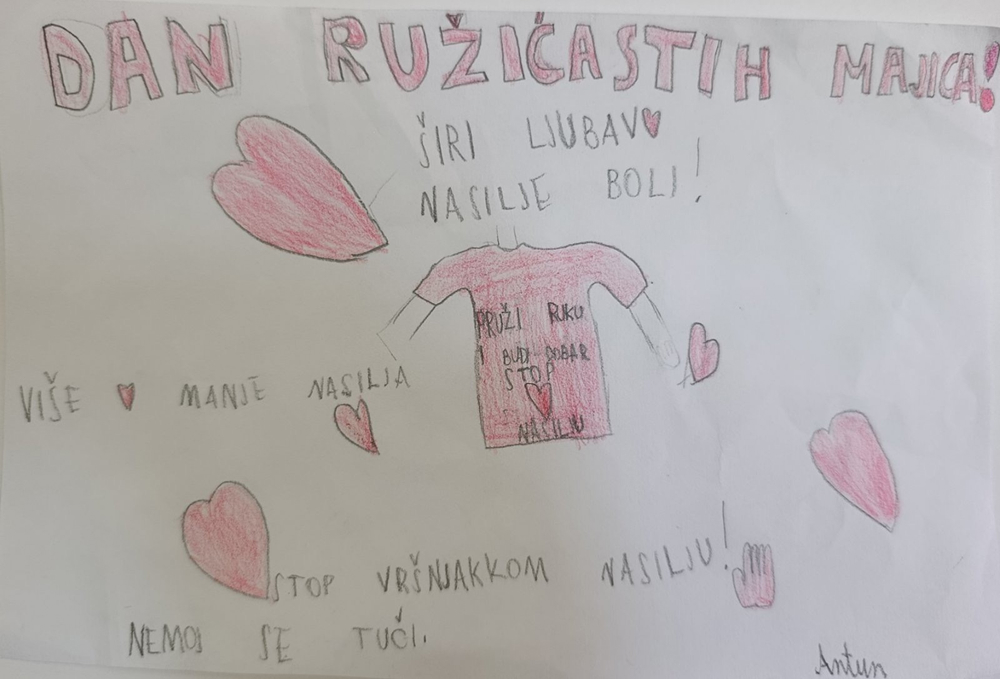 DAN RUŽIČASTIH MAJICA!
ŠIRI LJUBAV
NASILJE BOLI!
PRUŽI RUKU
I BUDI DOBAR
STOP
NASILJU
VIŠE MANJE NASILJA
STOP VRŠNJAKKOM NASILJU!
NEMOJ SE TUČI.
Antun